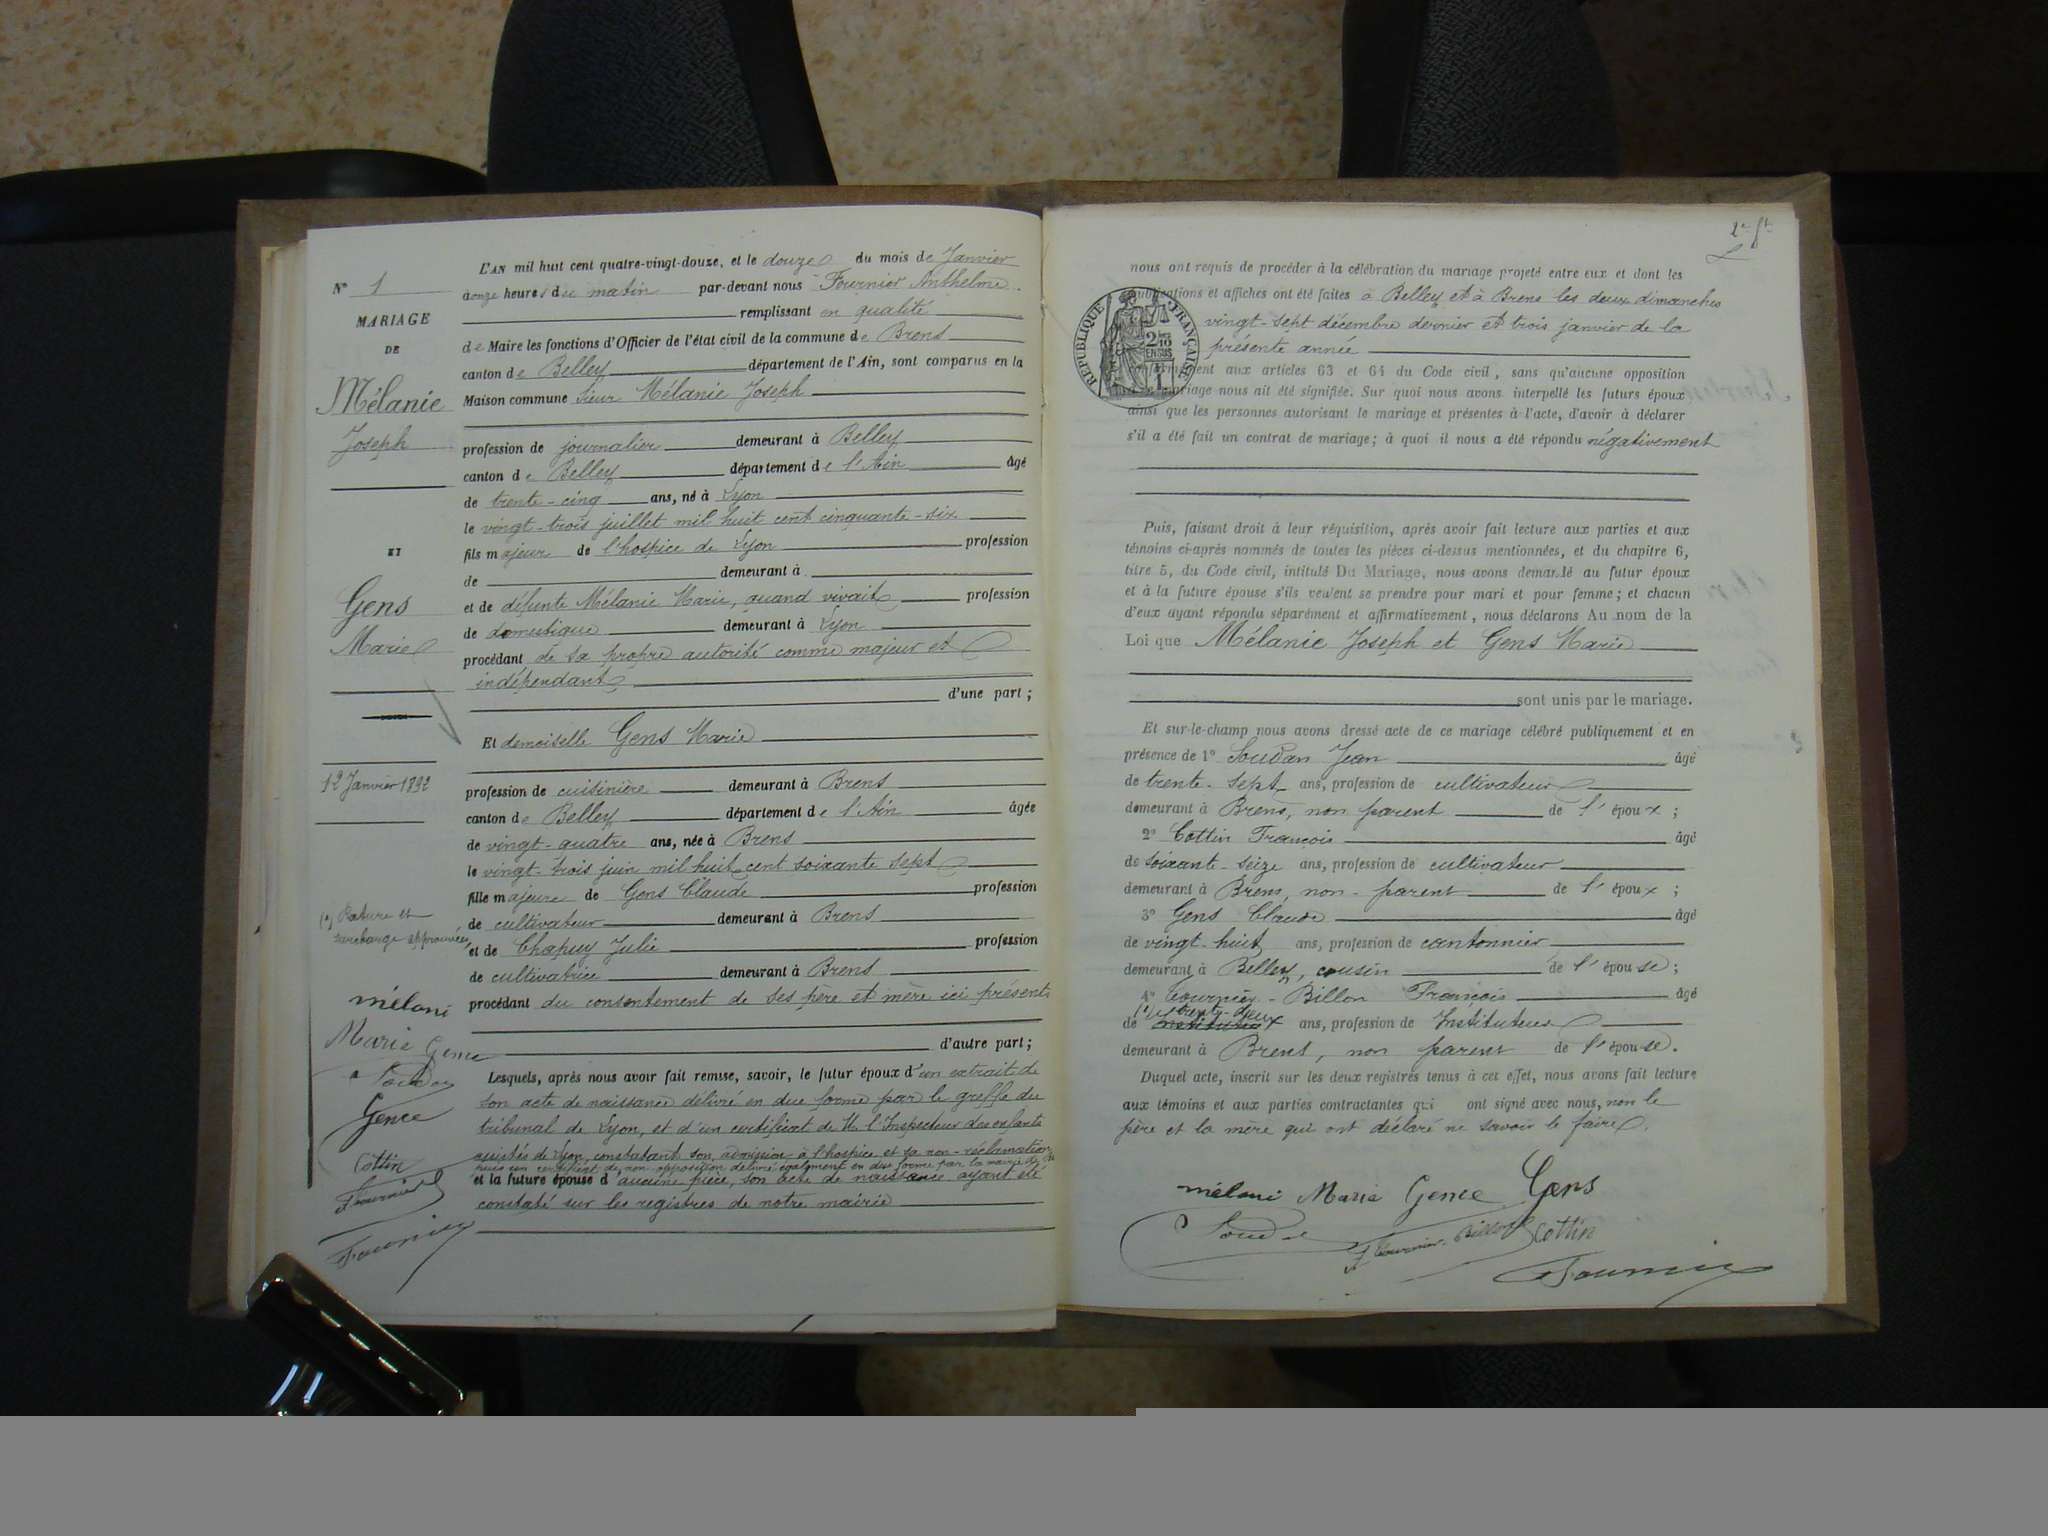 N° 1
MARIAGE
DE
Mélanie
Joseph
ET
Gens
Marie
12 Janvier 1892
(1) Rature et
surcharge approuvées
mélani
Marie Gence
Gence
Cottin
Fournier
L'AN mil huit cent quatre-vingt-douze, et le douze du mois de Janvier
à onze heures du matin par-devant nous Fournier Anthelme
remplissant en qualité
de Maire les fonctions d'Officier de l'état civil de la commune de Brens
canton de Belley département de l'Ain, sont comparus en la
Maison commune Sieur Mélanie Joseph
profession de journalier demeurant à Belley
canton de Belley département de l'Ain âgé
de trente-cinq ans, né à Lyon
le vingt-trois juillet mil huit cent cinquante-six
fils majeur de l'hospice de Lyon profession
de demeurant à
et de défunte Mélanie Marie, quand vivait profession
de domestique demeurant à Lyon
procédant de sa propre autorité comme majeur et
indépendant
d'une part;
Et demoiselle Gens Marie
profession de cuisinière demeurant à Brens
canton de Belley département de l'Ain âgée
de vingt-quatre ans, née à Brens
le vingt-trois juin mil huit cent soixante sept
fille majeure de Gens Claude profession
de cultivateur demeurant à Brens
et de Chapuy Julie profession
de cultivatrice demeurant à Brens
procédant du consentement de ses père et mère ici présents
d'autre part;
Lesquels, après nous avoir fait remise, savoir, le futur époux d'un extrait de
son acte de naissance délivré en due forme par le greffe du
tribunal de Lyon, et d'un certificat de M. l'Inspecteur des enfants
assistés de Lyon, constatant son admission à l'hospice et sa non-réclamation
puis un certificat de non-opposition délivré également en due forme par la mairie de
et la future épouse d'aucune pièce, son acte de naissance ayant été
constaté sur les registres de notre mairie
nous ont requis de procéder à la célébration du mariage projeté entre eux et dont les
publications et affiches ont été faites à Belley et à Brens les deux dimanches
vingt-sept décembre dernier et trois janvier de la
présente année
RÉPUBLIQUE FRANÇAISE
2/10 EN SUS
1
conformément aux articles 63 et 64 du Code civil, sans qu'aucune opposition
mariage nous ait été signifiée. Sur quoi nous avons interpellé les futurs époux
ainsi que les personnes autorisant le mariage et présentes à l'acte, d'avoir à déclarer
s'il a été fait un contrat de mariage; à quoi il nous a été répondu négativement
Puis, faisant droit à leur réquisition, après avoir fait lecture aux parties et aux
témoins ci-après nommés de toutes les pièces ci-dessus mentionnées, et du chapitre 6,
titre 5, du Code civil, intitulé Du Mariage, nous avons demandé au futur époux
et à la future épouse s'ils veulent se prendre pour mari et pour femme; et chacun
d'eux ayant répondu séparément et affirmativement, nous déclarons Au nom de la
Loi que Mélanie Joseph et Gens Marie
sont unis par le mariage.
Et sur-le-champ nous avons dressé acte de ce mariage célébré publiquement et en
présence de 1° Soudan Jean âgé
de trente-sept ans, profession de cultivateur
demeurant à Brens, non parent de l'époux;
2° Cottin François âgé
de soixante-seize ans, profession de cultivateur
demeurant à Brens, non-parent de l'époux;
3° Gens Claude âgé
de vingt-huit ans, profession de cantonnier
demeurant à Belley, cousin de l'épouse;
4° Fournier-Billon François âgé
(1) trente-deux
de ans, profession de Instituteur
demeurant à Brens, non parent de l'épouse.
Duquel acte, inscrit sur les deux registres tenus à cet effet, nous avons fait lecture
aux témoins et aux parties contractantes qui ont signé avec nous, non le
père et la mère qui ont déclaré ne savoir le faire.
mélani Marie Gence Gens
Fournier-Billon Cottin
Fournier